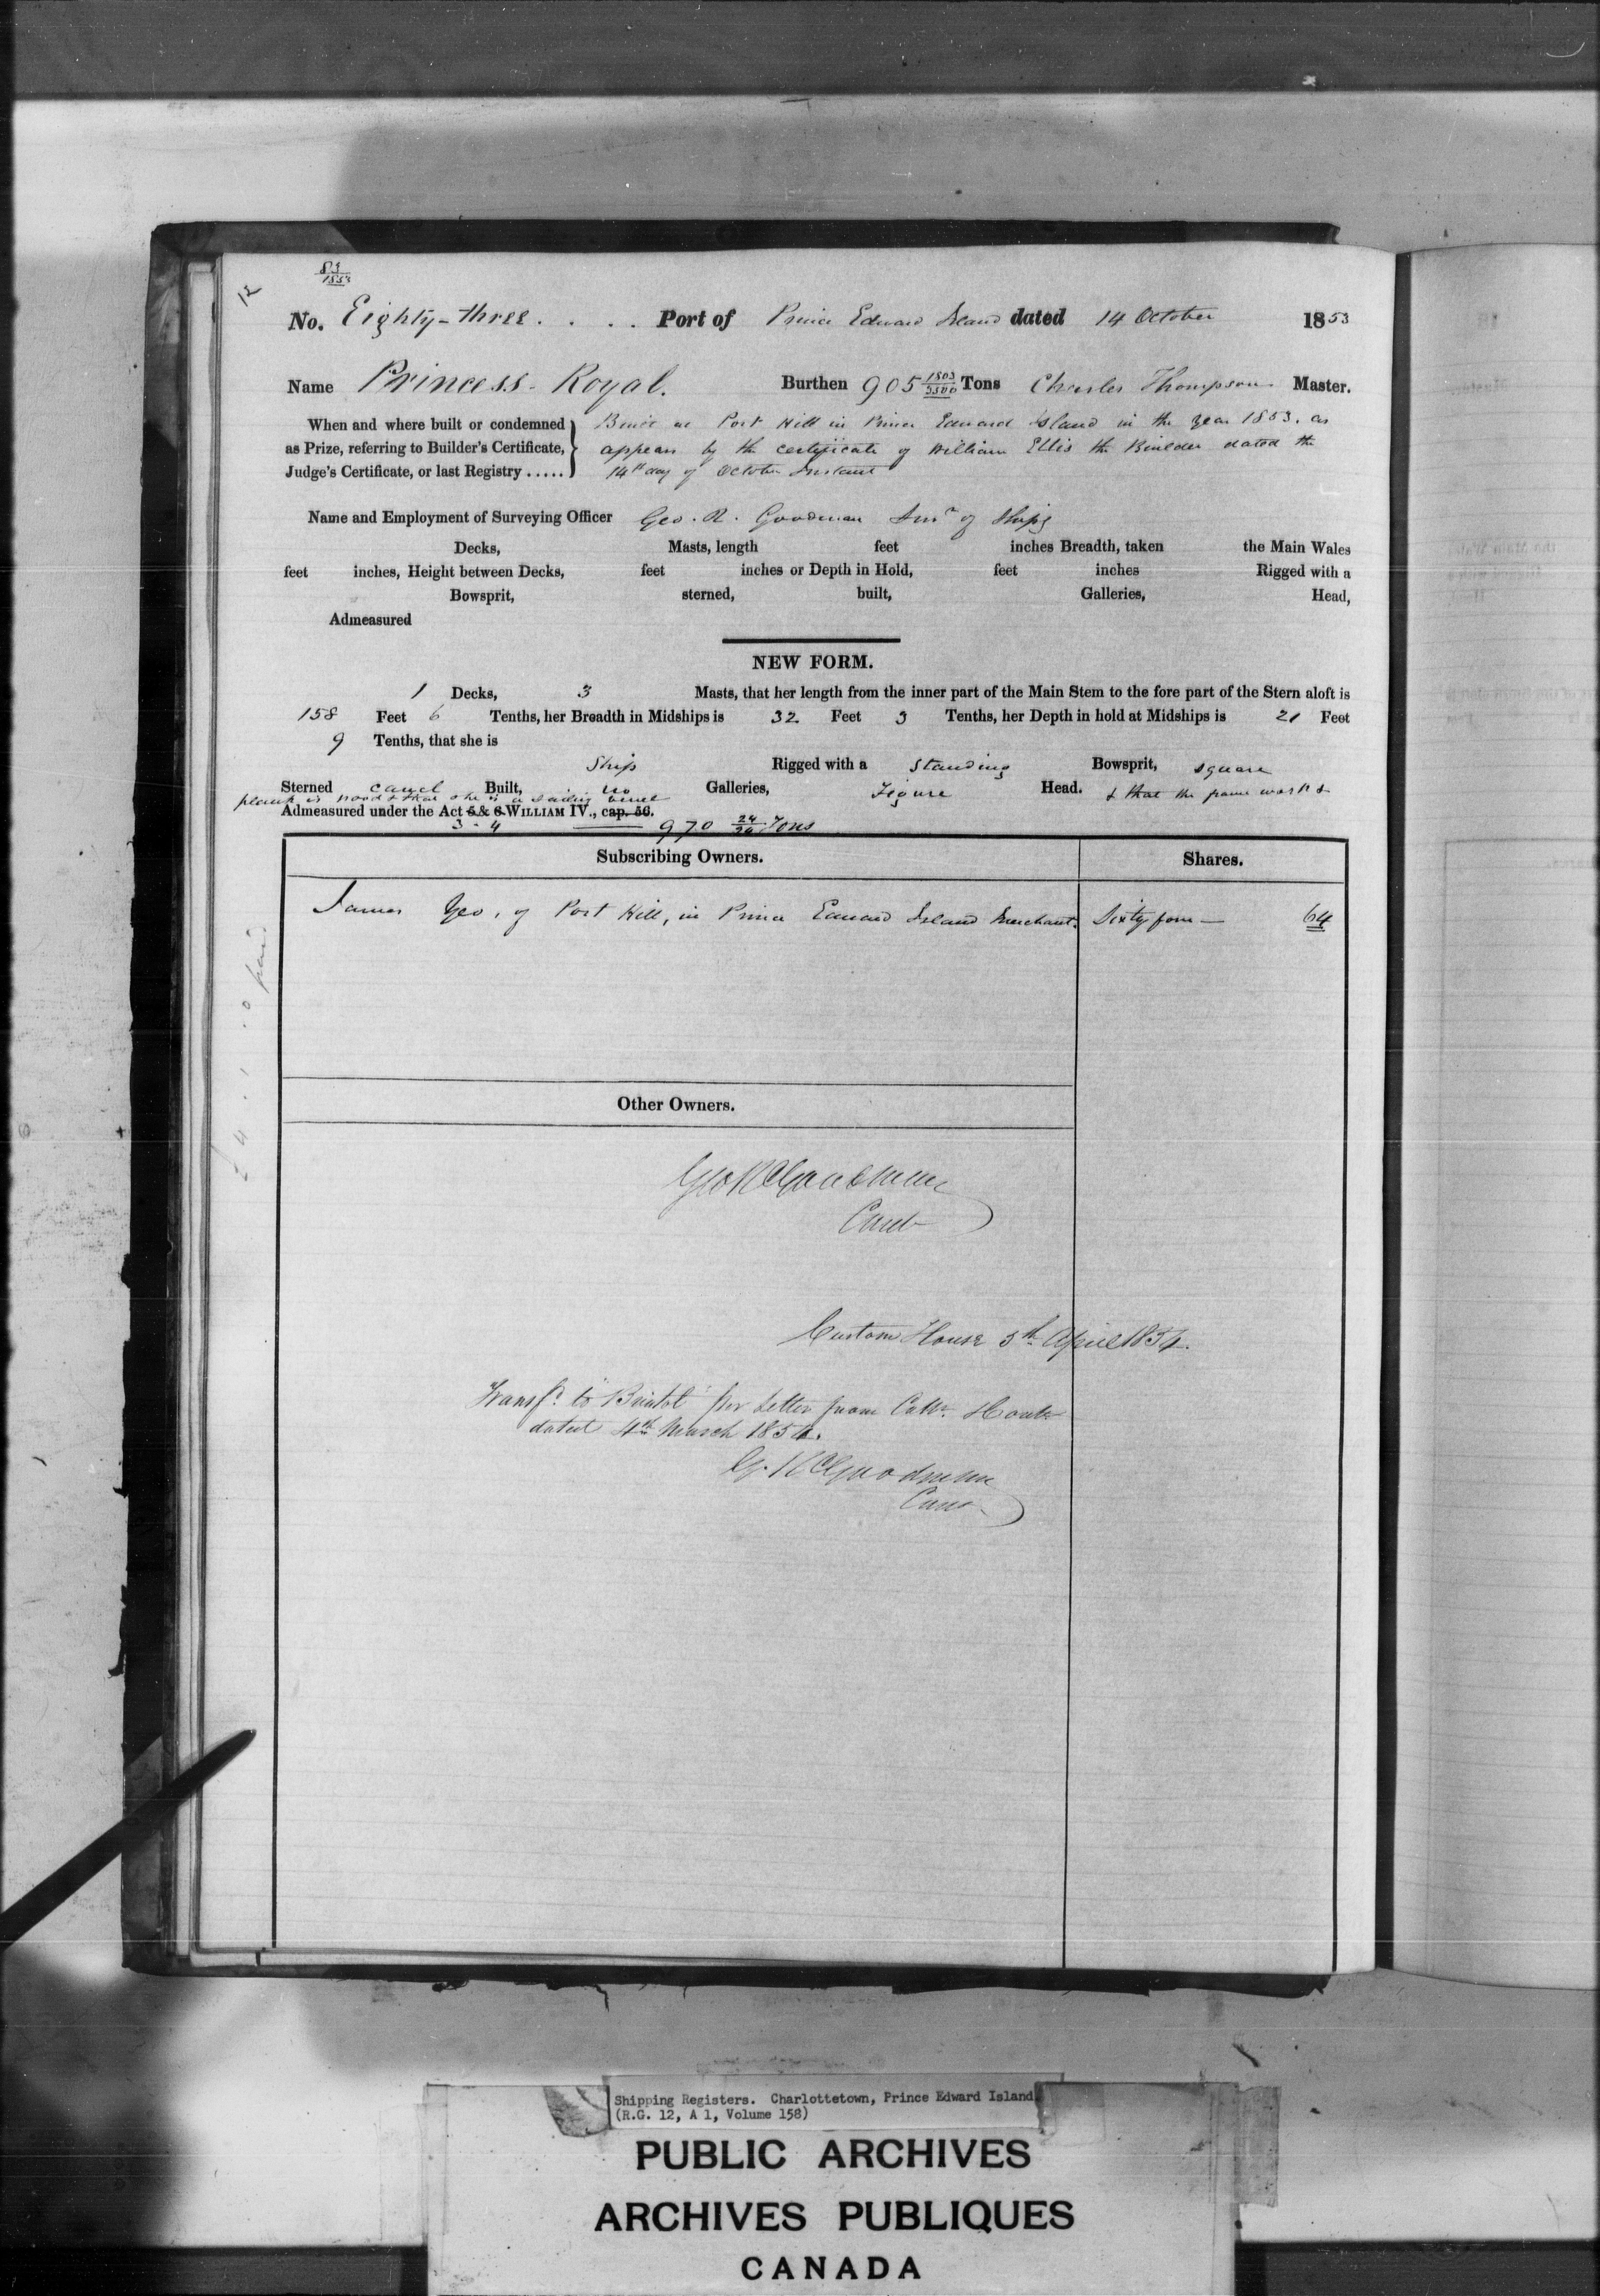 83
1853
No. Eighty-three . . . . Port of Prince Edward Island dated 14 October 1853
Name Princess Royal. Burthen 905 1803/3500 Tons Charles Thompson Master.
When and where built or condemned as Prize, referring to Builder's Certificate, Judge's Certificate, or last Registry .....
Built at Port Hill in Prince Edward Island in the year 1853. as
appears by the certificate of William Ellis the Builder dated the
14th day of October Instant
Name and Employment of Surveying Officer Geo. R. Goodman Surr of Ships
Decks, Masts, length feet inches Breadth, taken the Main Wales
feet inches, Height between Decks, feet inches or Depth in Hold, feet inches Rigged with a
Bowsprit, sterned, built, Galleries, Head,
Admeasured
NEW FORM.
1 Decks, 3 Masts, that her length from the inner part of the Main Stem to the fore part of the Stern aloft is
158 Feet 6 Tenths, her Breadth in Midships is 32 Feet 3 Tenths, her Depth in hold at Midships is 21 Feet
9 Tenths, that she is
Ship Rigged with a standing Bowsprit, square
Sterned carvel Built, no Galleries, Figure Head. & that the frame work & 
plank is wood & that she is a sailing vessel
Admeasured under the Act 5 & 6 WILLIAM IV., cap. 56.
3 - 4 970 24/30 Tons
Subscribing Owners. Shares.
James Yeo, of Port Hill, in Prince Edward Island Merchant. Sixty four — 64
£ 4 . 1 . 0 paid
Other Owners.
Geo R Goodman
Cont
Custom House 5th April 1854.
Transfd. to "Bristol" per Letter from Collr. there
dated 4th March 1854.
G. R Goodman
Cont
Shipping Registers. Charlottetown, Prince Edward Island
(R.G. 12, A 1, Volume 158)
PUBLIC ARCHIVES
ARCHIVES PUBLIQUES
CANADA